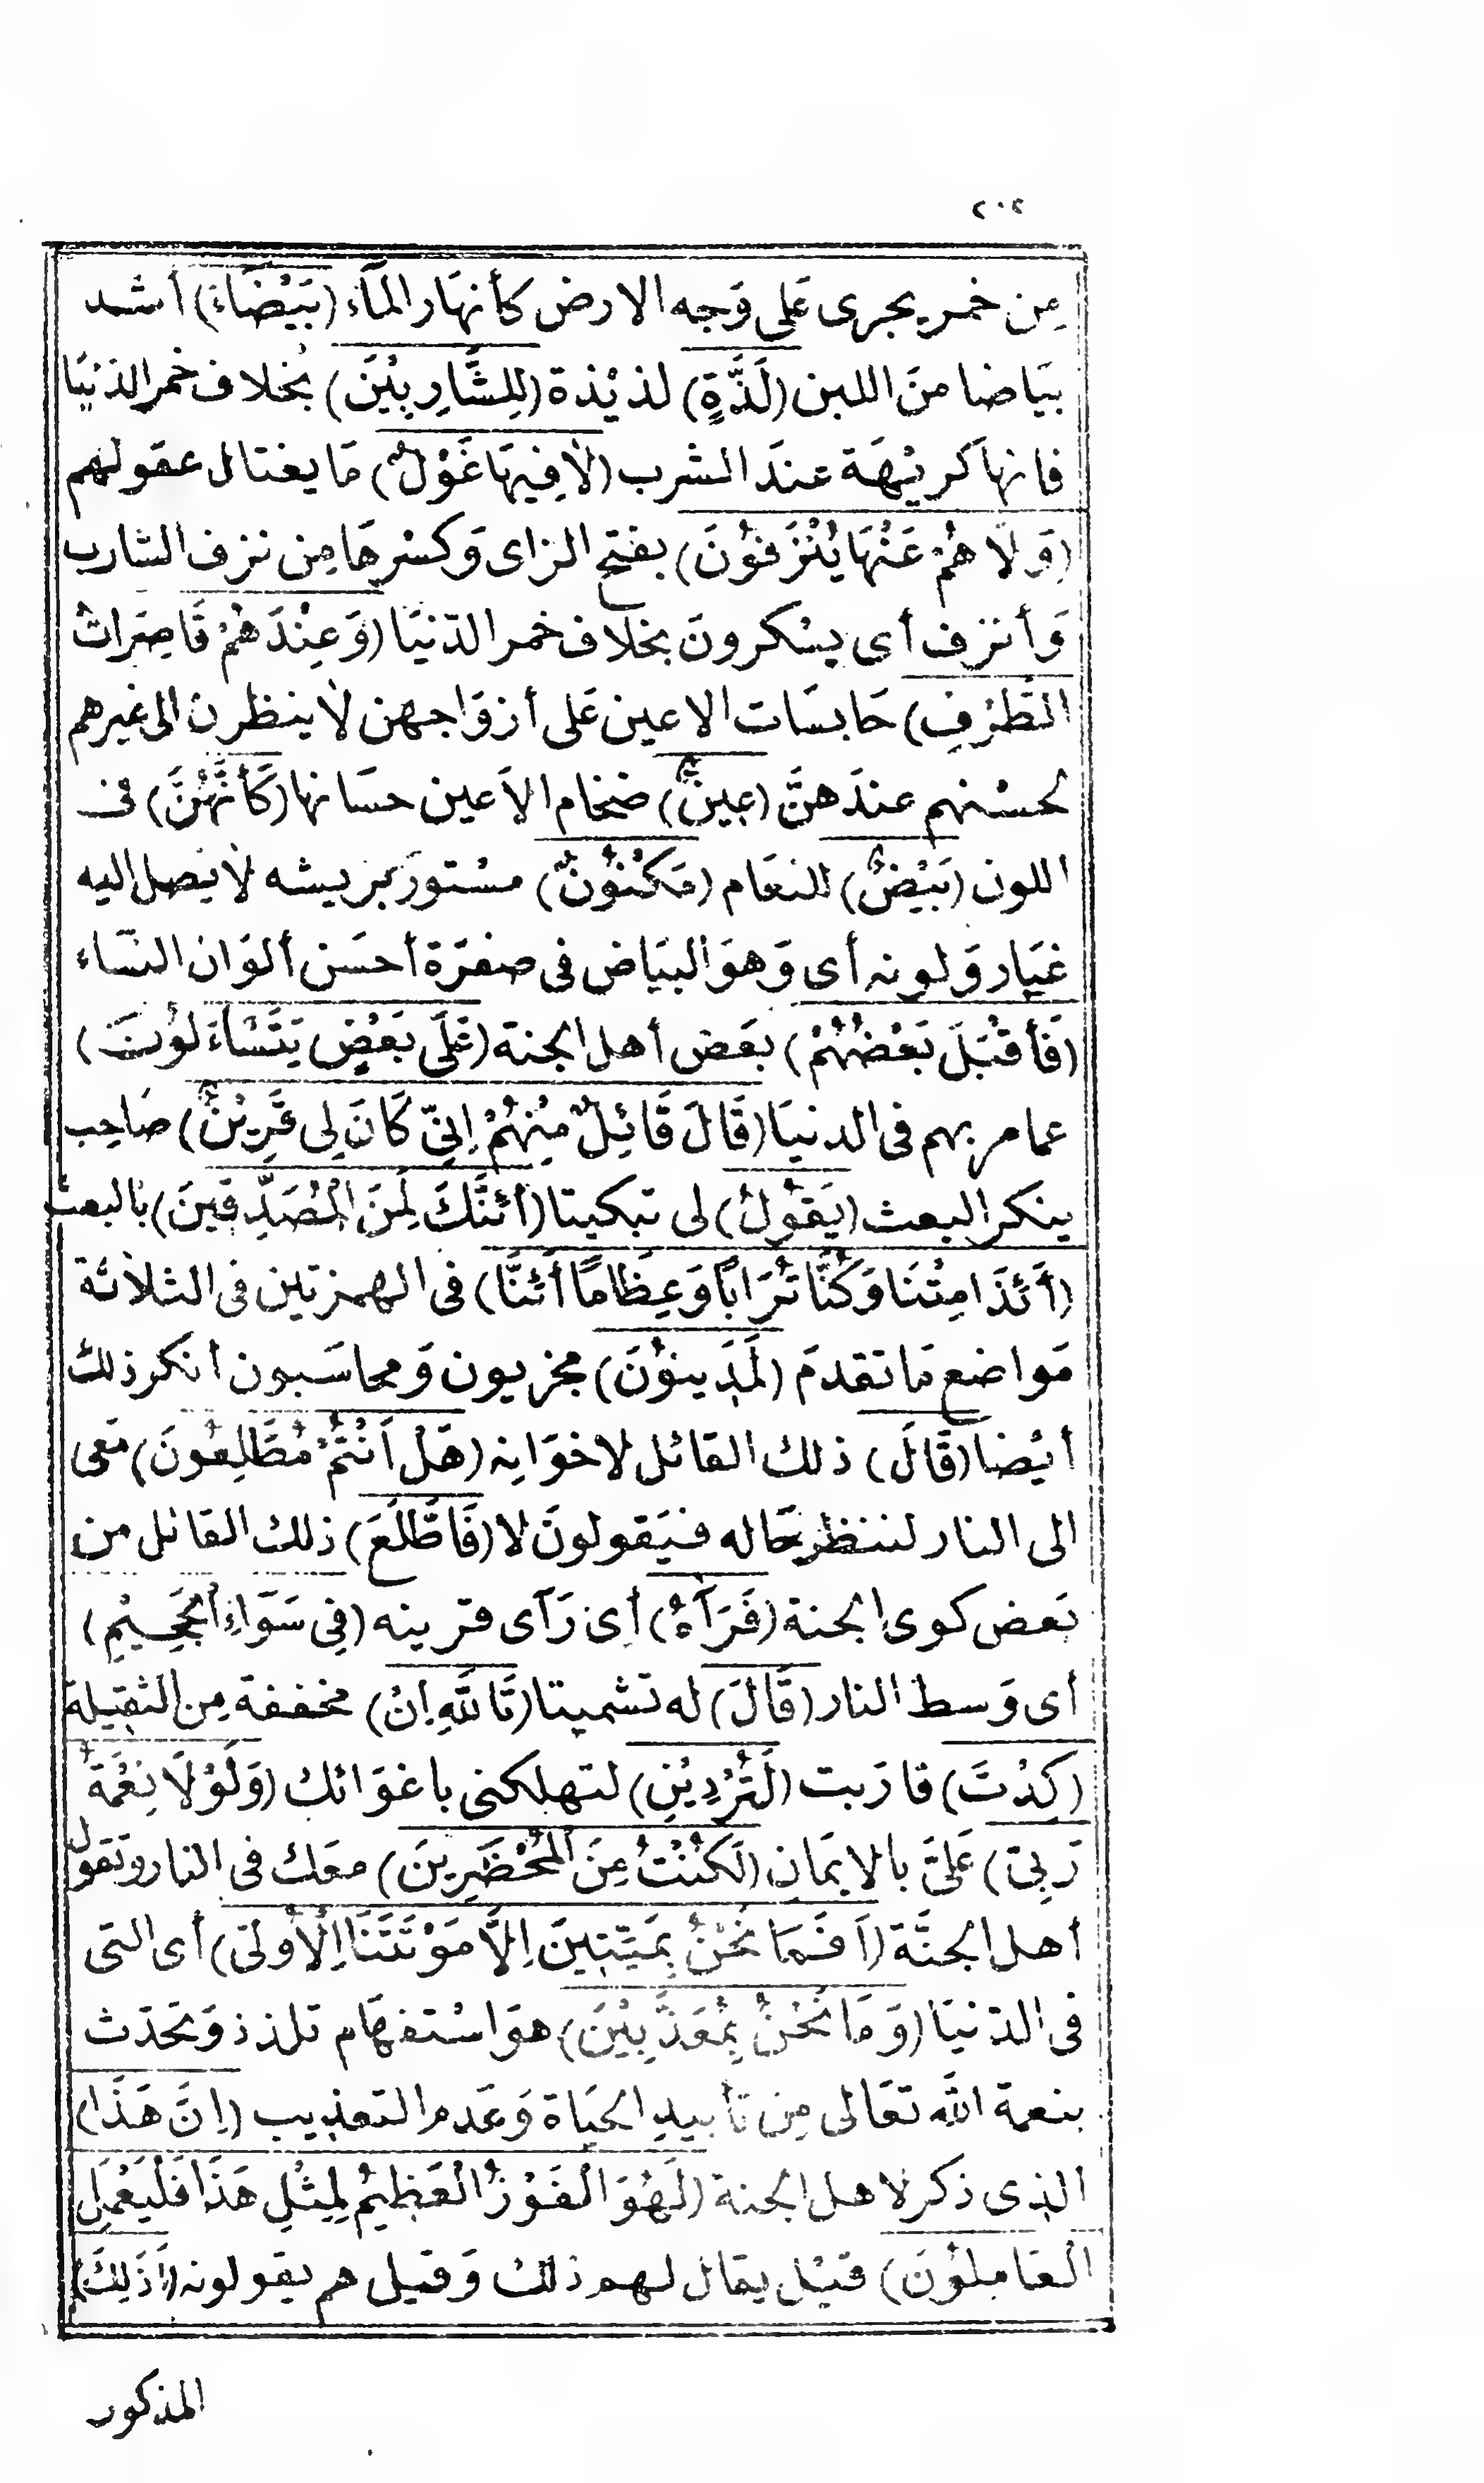 ٢٠٢
مِن خمر يجرى عَلى وَجه الارض كأنهَار المَآء (بَيْضَاءَ) أشد
بيَاضا منَ اللبن (لَذَّةٍ) لذيْذة (لِلشَّارِبِيْنَ) بخلاف خمر الدنيَا
فانهَا كريْهَة عندَ الشرب (لَا فِيهَا غَوْلٌ) مَا يغتال عقولهم
(وَلَا هُمْ عَنْهَا يُنْزَفُوْنَ) بفتح الزاى وَكسْرهَا مِن نزف الشارب
وَأنزف أى يسْكرونَ بخلَاف خمر الدّنيَا (وَعِنْدَهُمْ قَاصِرَاتُ
الطَّرْفِ) حَابسَات الاعين عَلى أزوَاجهن لَا ينظرن الى غيرهم
لحسْنهم عندَهنَّ (عِينٌ) ضخام الاَعين حسَانها (كَأَنَّهُنَّ) فى
اللون (بَيْضٌ) للنعَام (مَكْنُوْنٌ) مسْتورَ بريشه لَا يَصل اليه
غبَار وَلونه أى وَهوَ البيَاض فى صفرَة أحسَن ألوَان النسَاء
(فَأَقْبَلَ بَعْضُهُمْ) بَعَض أهل الجنة (عَلَى بَعْضٍ يَتَسْاءَلوُنَ)
عما مر بهم فى الدنيَا (قَالَ قَائِلٌ مِنْهُمْ اِنِّى كَانَ لِى قَرِيْنٌ) صَاحِب
ينكر البعث (يَقُولُ) لى تبكيتا (أَئنَّكَ لَمِنَ الْمُصَدِّقِينَ) بالبعث
(أَئذَا مِتْنَا وَكُنَّا تُرَابًا وَعِظَامًا أَئنَّا) فى الهمزتين فى الثلاثة
مَواضع مَا تقدمَ (لَمَدِينُوْنَ) مجزيون وَمحاسَبون أنكر ذلك
أيْضا (قَالَ) ذلك القائل لاخوَانِه (هَلْ اَنْتُمْ مُطَّلِعُونَ) مَعى
الى النار لننظر حَاله فيَقولونَ لا (فَاطَّلَعَ) ذلك القائل من
بَعض كوى الجنة (فَرَآهُ) أى رَآى قرينه (فِى سَوَاءِ الْجَحِيْمِ)
أى وَسط النار (قَالَ) له تشميتا (تَاللَّهِ اِنْ) مخففة مِن الثقيلة
(كِدْتَ) قارَبت (لَتُرْدِيْنِ) لتهلكنى باغوَائك (وَلَوْلَا نِعْمَةُ
رَبِى) عَلىَّ بالايمَان (لَكُنْتُ مِنَ الْمُحْضَرِينَ) معَك فى النار وتقول
أهل الجنَّة (اَفَمَا نَحْنُ بِمَيِّتِينَ اِلَّا مَوْتَتَنَا الْأُولَى) أى التى
فى الدّنيَا (وَمَا نَحْنُ بِمُعَذَّبِيْنَ) هوَ اسْتفهَام تلذذ وَتحَدث
بنعمة اللَّه تعَالى مِن تأبيدِ الحيَاة وَعَدم التعذيب (اِنَّ هَذَا)
الذى ذكر لاهل الجنة (لَهُوَ الْفَوْزُ الْعَظِيمُ لِمِثْلِ هَذَا فَلْيَعْمَلِ
الْعَامِلُوْنَ) قيْل يقال لهم ذلك وَقيل هم يقولونه (أَذَلِكَ)
المذكور